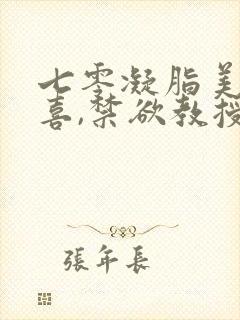 七零凝脂美
喜,禁欲教授
張年長